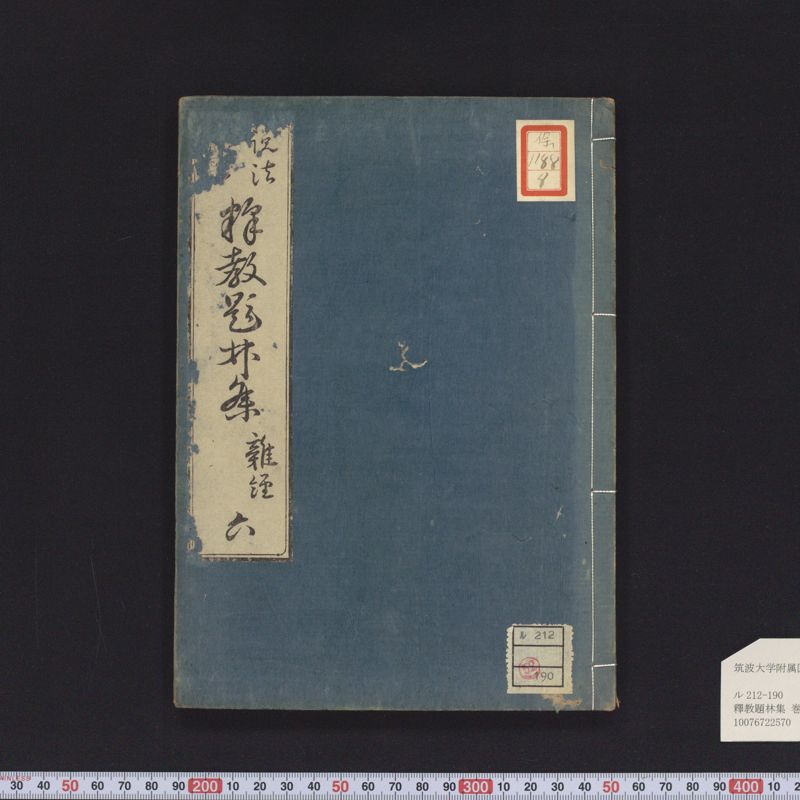 説法
釋教題林集
雜経
六
1188
8
ル 212
190
筑波大学附属
ル 212-190
釋教題林集 巻
10076722570
STAINLESS
30 40 50 60 70 80 90 200 10 20 30 40 50 60 70 80 90 300 10 20 30 40 50 60 70 80 90 400 10